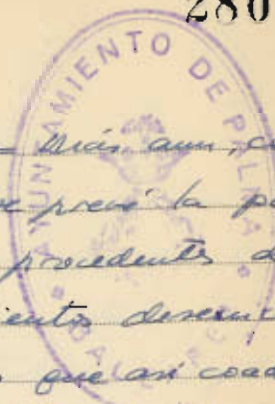 280
AYUNTAMIENTO DE PALMA
Más aun, c
e prevé la p
procedentes d
ientos desem
que así coad